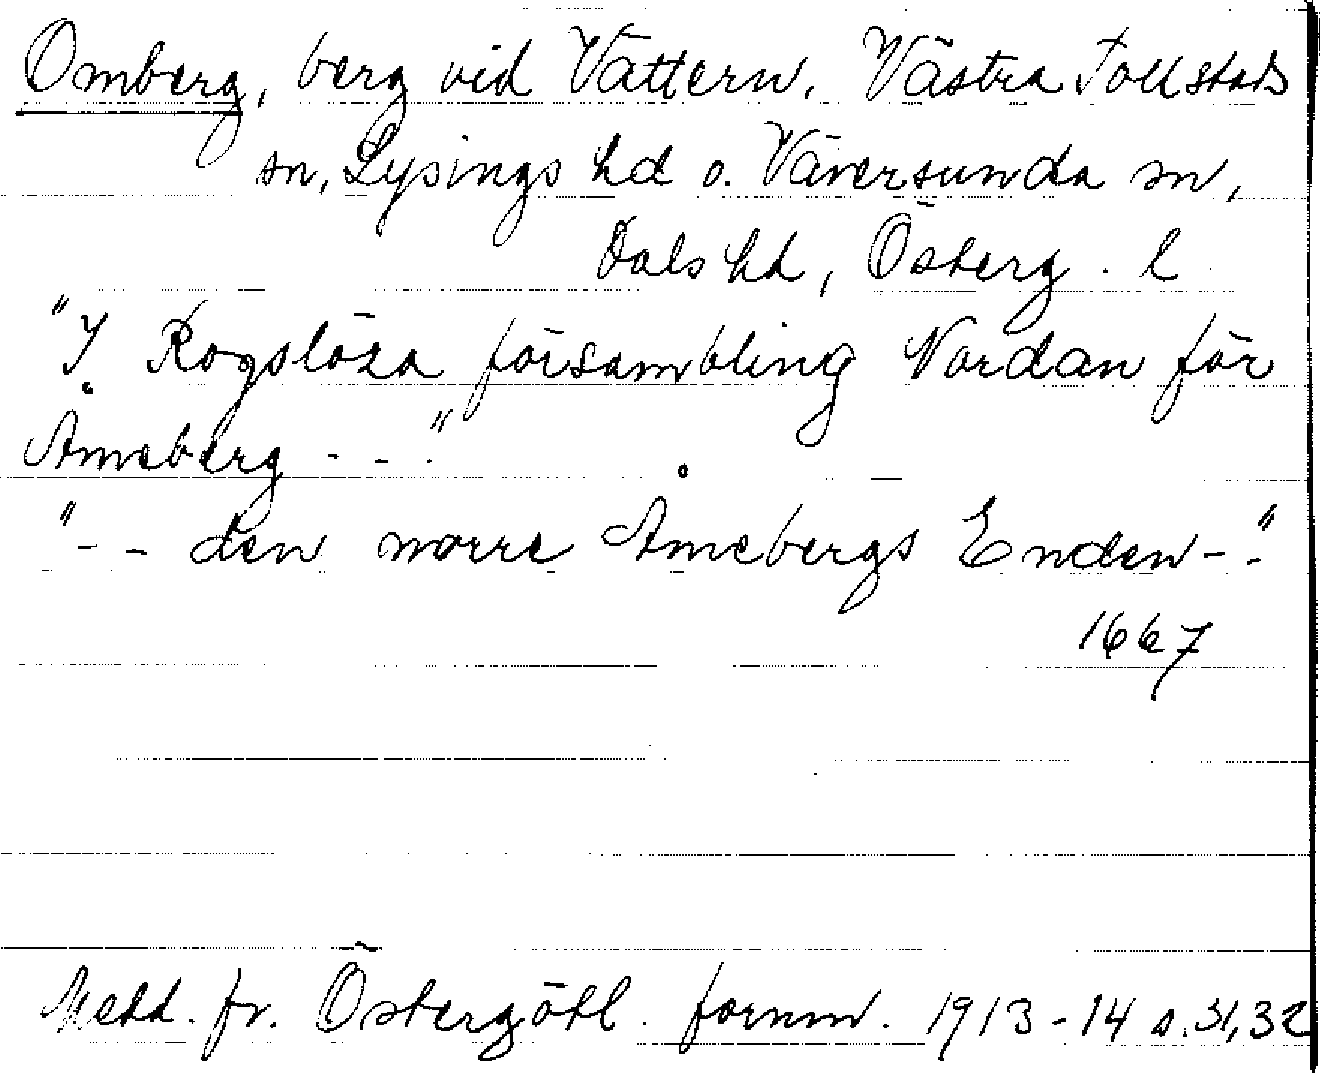 Omberg, berg vid Vättern, Västra Tollstads
sn, Lysings hd o. Väversunda sn,
Dals hd, Österg. l
"I Rogslösa försambling Nordan för
Åmeberg - - ."
"- - den norre Åmebergs Enden -."
1667
Medd. fr. Östergötl. fornm. 1913-14 s. 31, 32